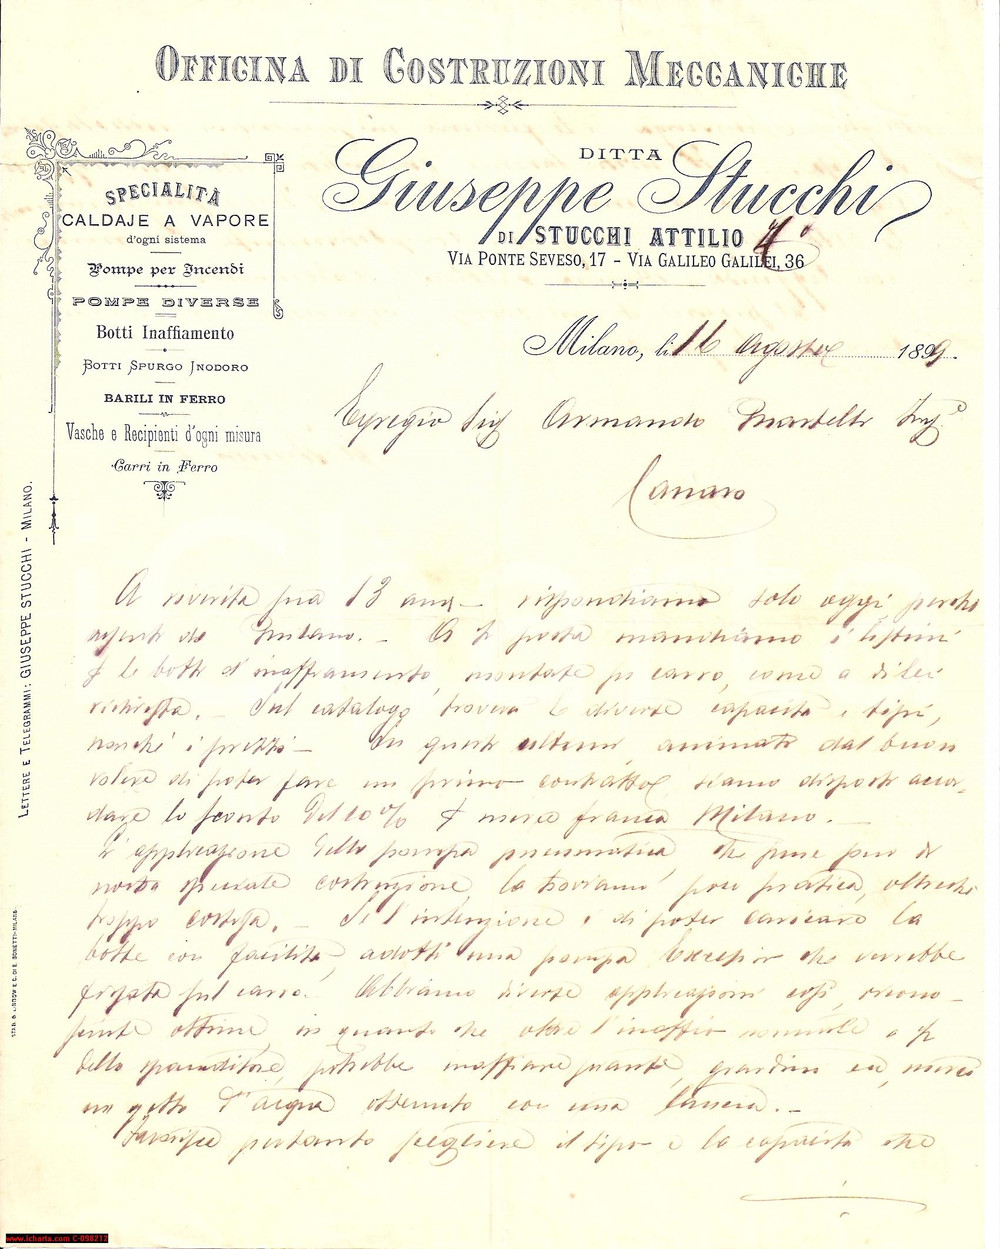 OFFICINA DI COSTRUZIONI MECCANICHE
DITTA
Giuseppe Stucchi
DI STUCCHI ATTILIO
VIA PONTE SEVESO, 17 - VIA GALILEO GALILEI, 36
SPECIALITÀ
CALDAJE A VAPORE
d'ogni sistema
Pompe per Incendi
POMPE DIVERSE
Botti Inaffiamento
BOTTI SPURGO INODORO
BARILI IN FERRO
Vasche e Recipienti d'ogni misura
Carri in Ferro
LETTERE E TELEGRAMMI: GIUSEPPE STUCCHI - MILANO.
Milano, li 16 Agosto 1899.
Egregio Sig Armando Martelli Ing.e
Canaro
A riverita sua 13 and - rispondiamo solo oggi perchè
assente da Milano. - A 1/2 posta mandiamo i listini
le botti d'inaffiamento, montate su carro, come a di lei
richiesta. - Sul catalogo troverà le diverse capacità e tipi,
nonchè i prezzi - Su questi ultimi, animati dal buon
volere di poter fare un primo contratto, siamo disposti accor-
dare lo sconto del 10% merce franca Milano. -
L'applicazione della pompa pneumatica, che pure pur di
nostra speciale costruzione, la troviamo poco pratica, oltrechè
troppo costosa. - Se l'intenzione è di poter caricare la
botte con facilità, adotti una pompa che verrebbe
fissata sul carro. Abbiamo diverse applicazioni così,
ottime, in quanto che oltre l'inaffio normale a 1/2
dello spanditore, potrebbe inaffiare piante, giardini ecc, mercè
un getto d'acqua ottenuto con una lancia. -
Favorisca pertanto scegliere il tipo e la capacità che
www.icharta.com C-098212